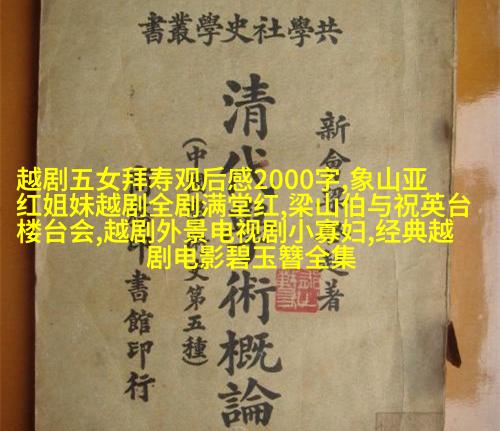 共學社史學叢書
新會著
清代術概論
(中文第五種)
印書館印行
越剧五女拜寿观后感2000字,象山亚
红姐妹越剧全剧满堂红,梁山伯与祝英台
楼台会,越剧外景电视剧小寡妇,经典越
剧电影碧玉簪全集